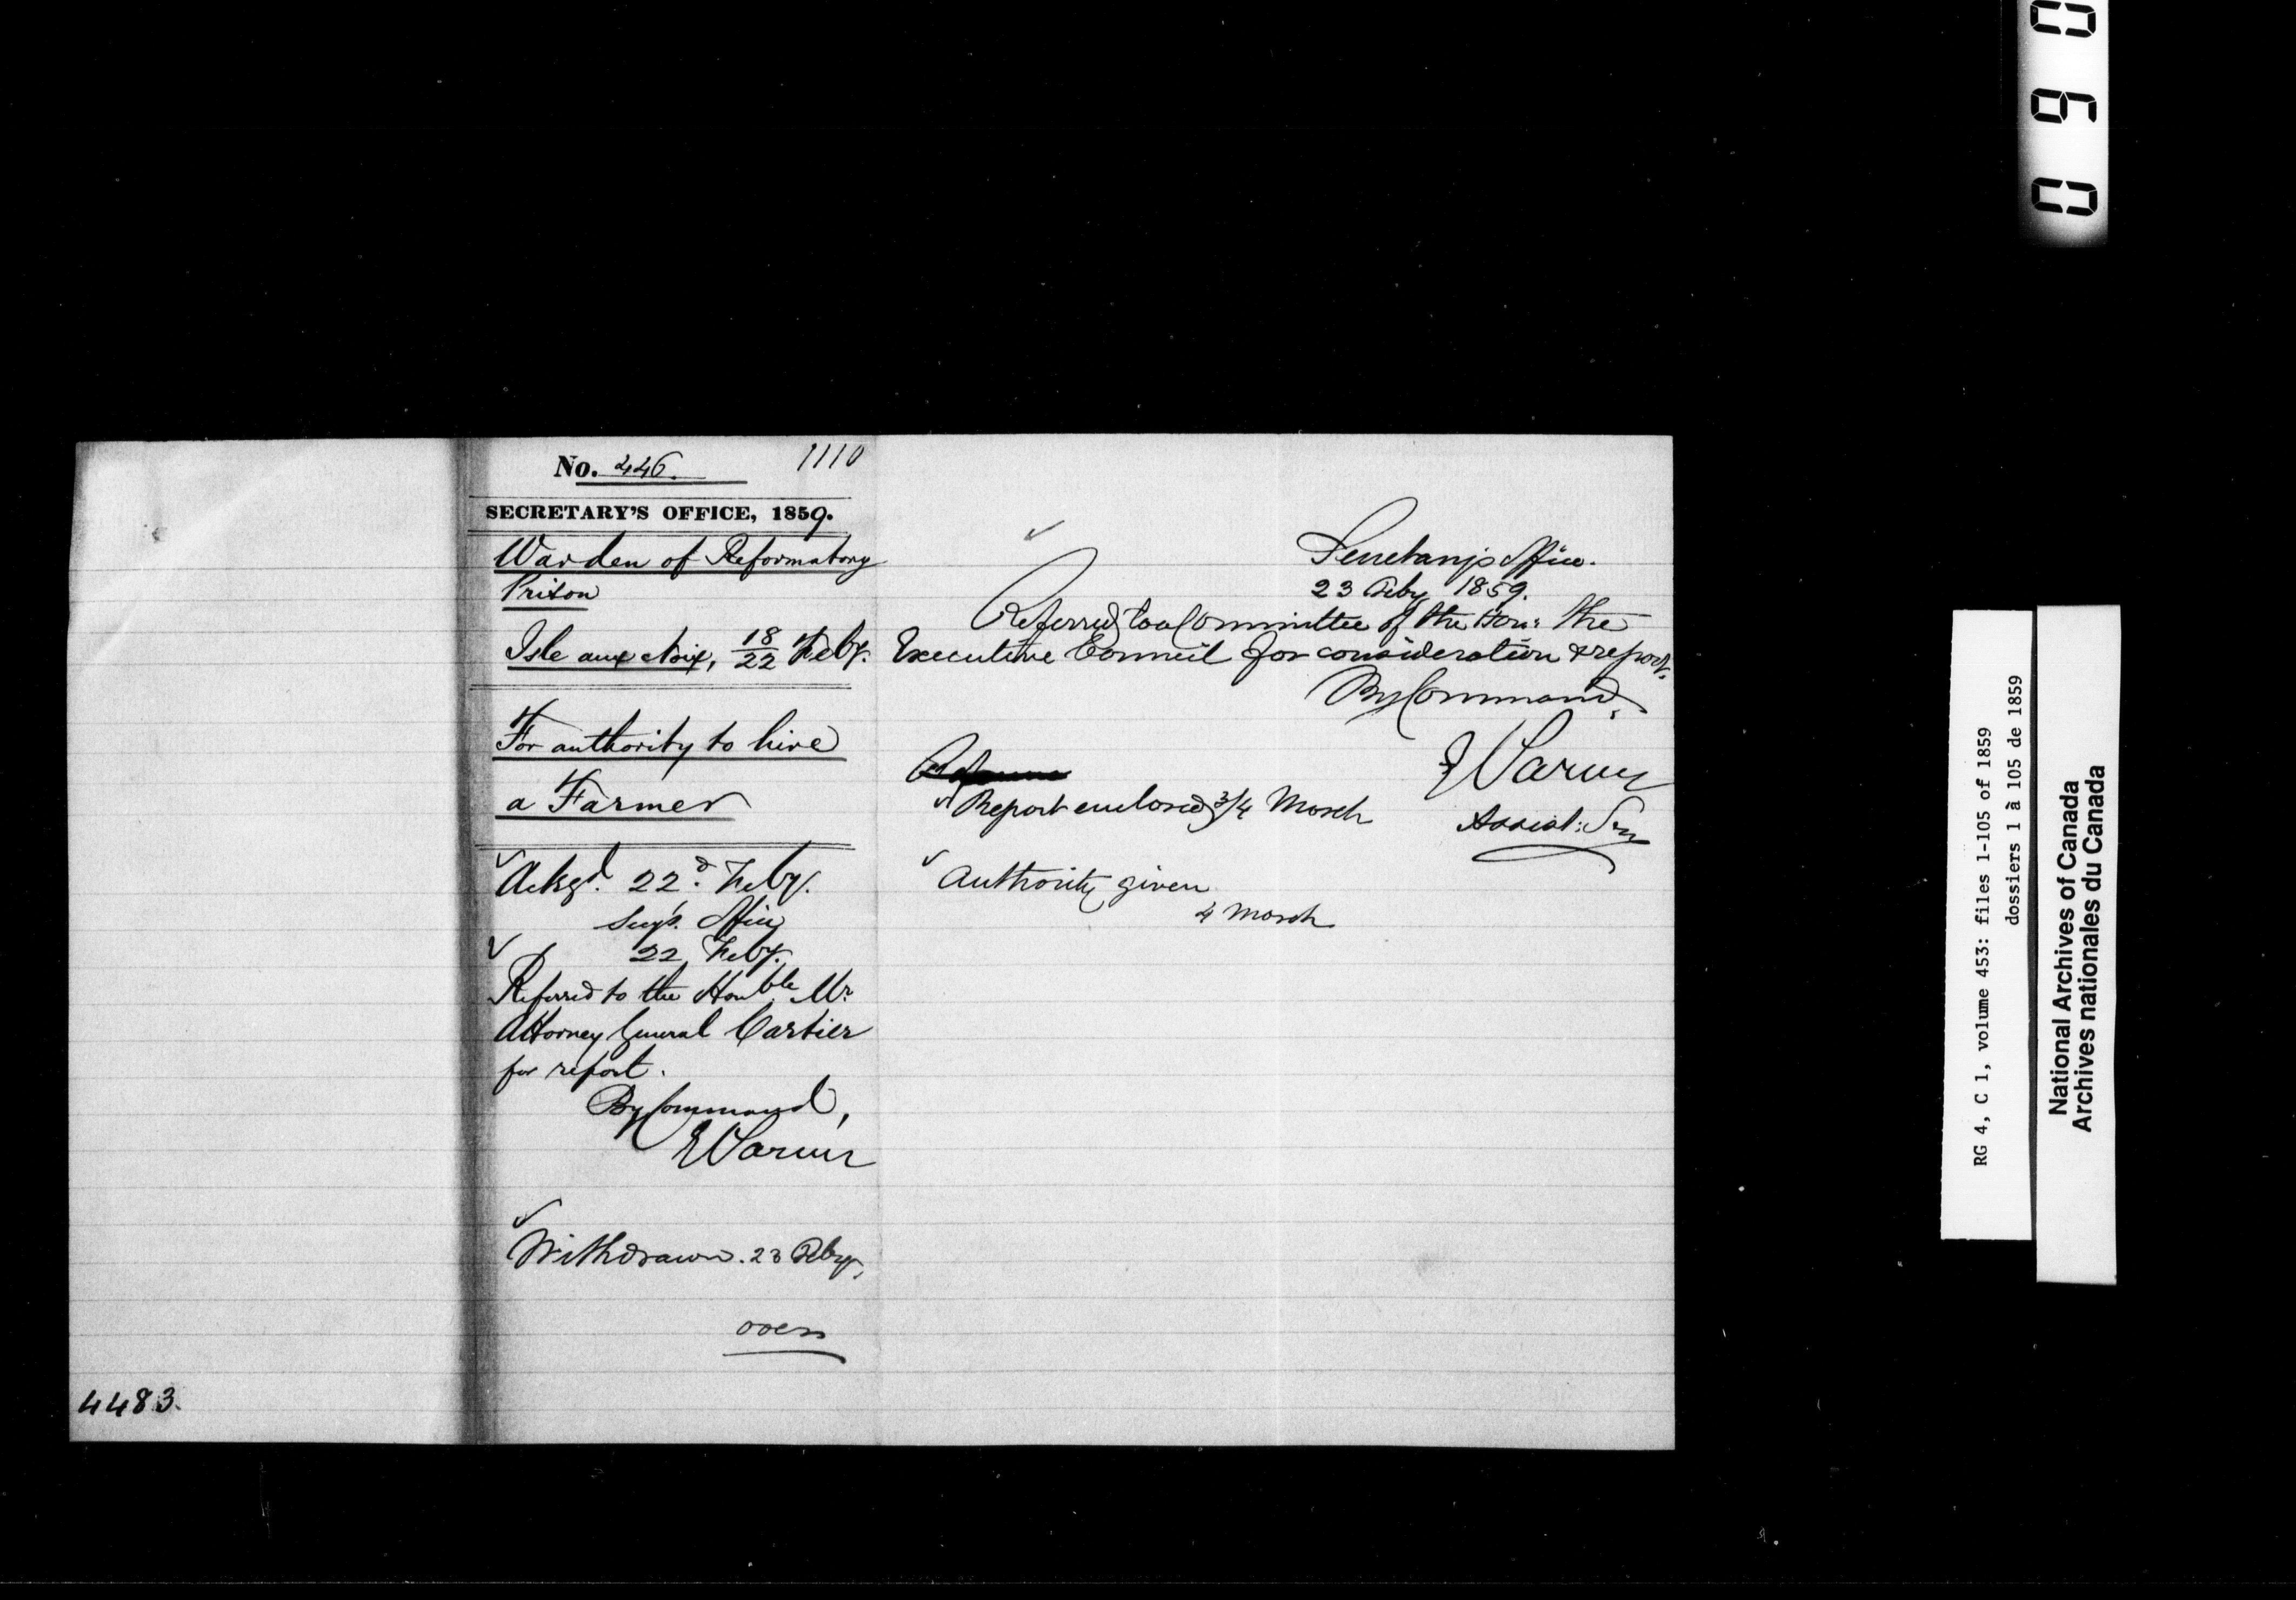 No. 446. 1110
SECRETARY'S OFFICE, 1859.
Warden of Reformatory
Prison
Isle aux Noix, 18/22 Feby.
For authority to hire
a Farmer
Ackgd. 22d. Feby.
Secy's. Office
22 Feby.
Referred to the Honble Mr
Attorney General Cartier
for report.
By Command,
Withdrawn. 23 Feby.
over
4483.
Secretary's Office.
23 Feby 1859.
Referred to a Committee of the Hon: the
Executive Council for consideration & report.
By Command,
Assist: Secy
Report enclosed 3/4 March
Authority given
4 March
RG 4, C 1, volume 453: files 1-105 of 1859
dossiers 1 à 105 de 1859
National Archives of Canada
Archives nationales du Canada
090